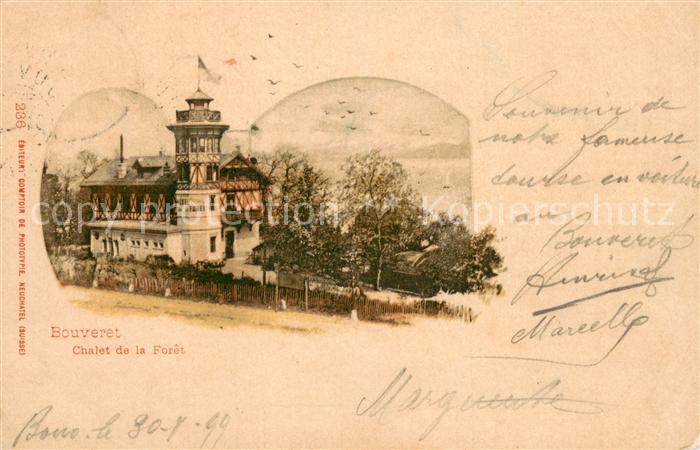 236 ÉDITEUR: COMPTOIR DE PHOTOTYPIE, NEUCHATEL (SUISSE)
Bouveret
Chalet de la Forêt
Souvenir de
notre fameuse
course en voiture
au
Bouveret
Henri
Marcelle
Marguerite
le 30-7-99
copyright Kopierschutz